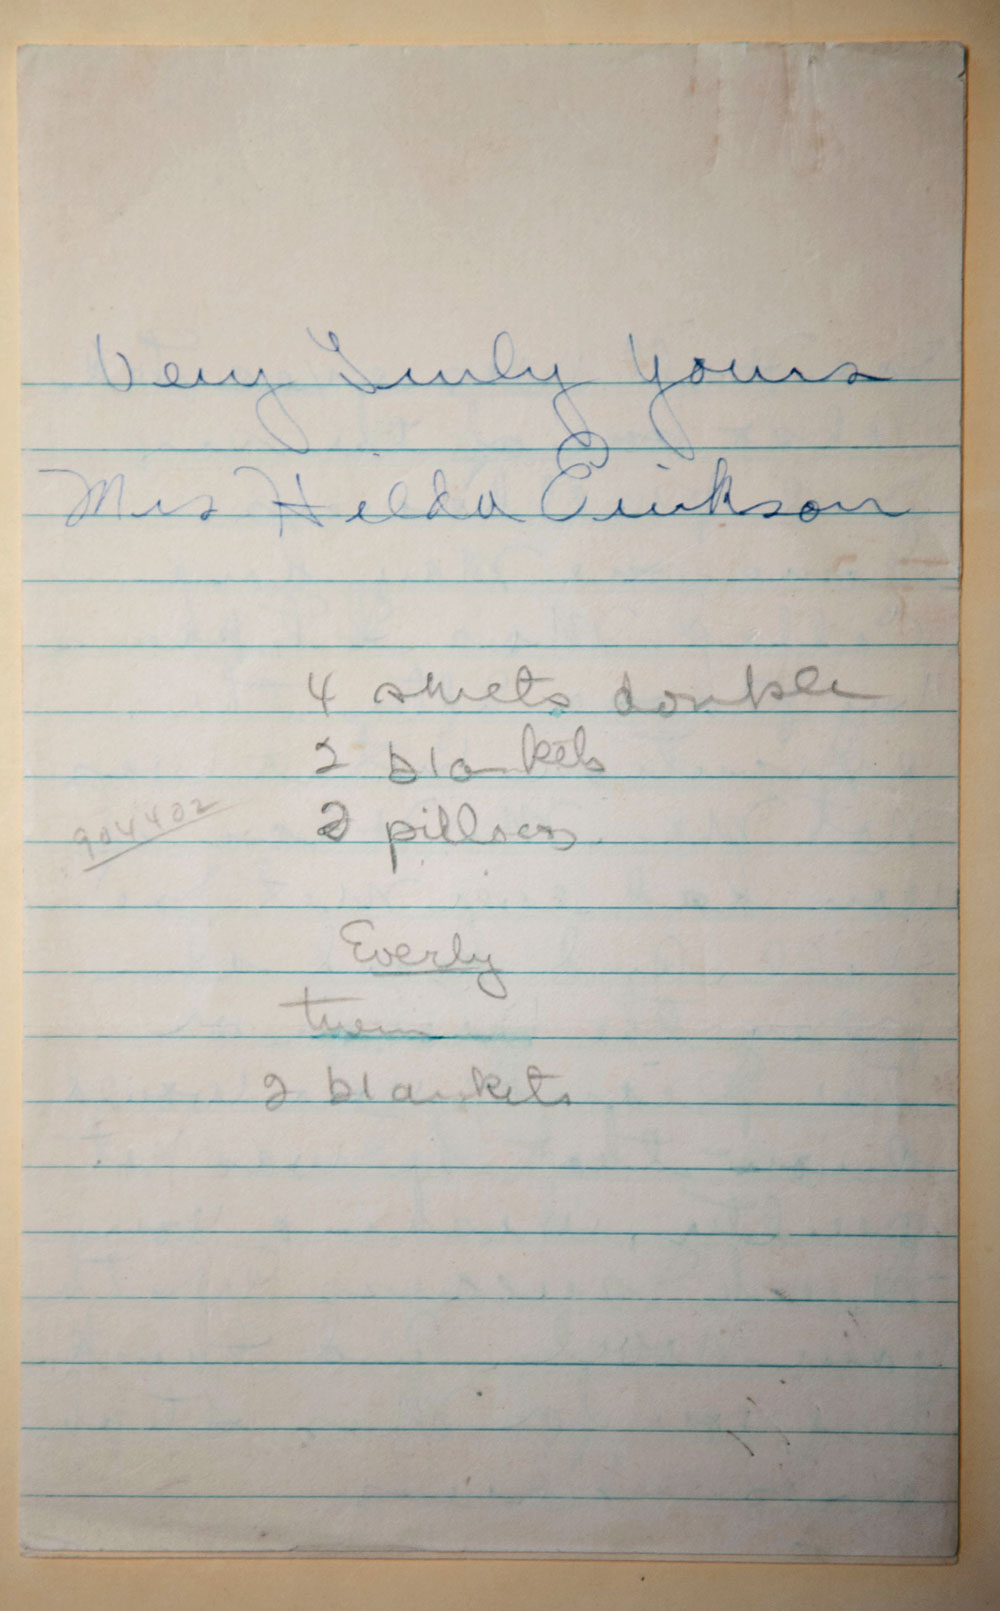 Very Truly Yours
Mrs Hilda Erikson
4 sheets double
2 blankets
904402
2 pillows
Everly
2 blankets